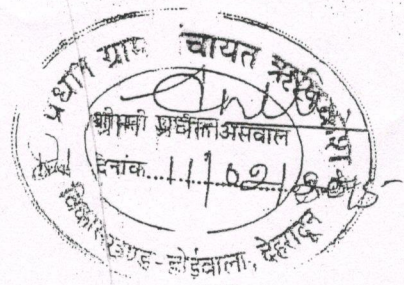 प्रधान ग्राम पंचायत
श्रीमती असवाल
दिनांक 11/02/2015
विकासखण्ड - डोईवाला, देहरादून